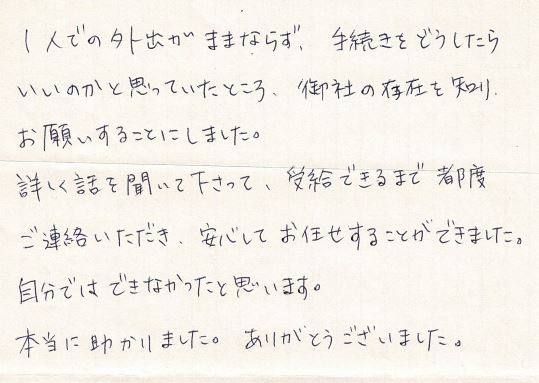 1人での外出がままならず、手続きをどうしたら
いいのかと思っていたところ、御社の存在を知り、
お願いすることにしました。
詳しく話を聞いて下さって、受給できるまで都度
ご連絡いただき、安心してお任せすることができました。
自分ではできなかったと思います。
本当に助かりました。ありがとうございました。